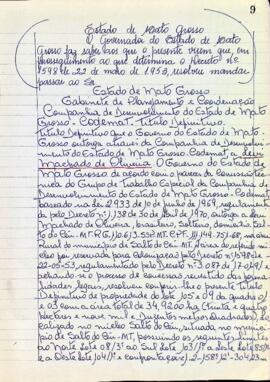 9
Estado de Mato Grosso
O Governador do Estado de Mato
Grosso faz saber aos que o presente virem que, em
prosseguimento ao que determina o Decreto nº
1598 de 22 de maio de 1953, resolveu mandar
passar ao Sr
Estado de Mato Grosso
Gabinete de Planejamento e Coordenação
Companhia de Desenvolvimento do Estado de Mato
Grosso - Codemat - Titulo Definitivo
Titulo Definitivo que o Governo do Estado de Mato-
Grosso outorga através da Companhia de Desenvolvi-
mento do Estado de Mato Grosso Codemat a Levi
Machado de Oliveira O Governo do Estado de
Mato Grosso de acordo com o parecer da Comissão Tecni
ca do Grupo de Trabalho Especial da Companhia de
Desenvolvimento do Estado de Mato Grosso - Codemat,
baseado na Lei 2.933 de 10 de junho de 1969, regulamenta
da pelo Decreto nº 1.138 de 30 de abril de 1970, outorga a Levi
Machado de Oliveira, brasileiro, Solteiro, domicilio Sal-
to do Céu-MT
Rural do município de Salto do Céu-MT, Área do referido
nucleo foi reservada para Colonização pelo Decreto nº 1.598 de
22-05-53, regulamentado pelo Decreto nº 3.087 de
e achando-se o processo de concessão revestido das formali-
dades legais, resolveu conferir-lhe o presente Titulo
Definitivo de propriedade do lote 105 e 09 da quadra
e 03 com a área total de 34,9200 ha (trinta e quatro
hectares e nove mil e Duzentos metros quadrados), lo
calizado no nucleo Salto do Céu, situado no municí-
pio de Salto do Céu-MT, possuindo os seguintes limites
ao Norte lote
e a Oeste lote